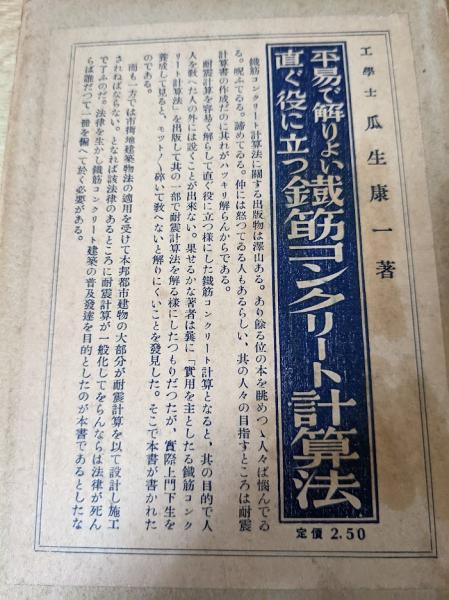 工學士 瓜生康一著
平易で解りよい
直ぐ役に立つ
鐵筋コンクリート計算法
定價 2.50
鐵筋コンクリート計算法に關する出版物は澤山ある。あり餘る位の本を眺めつゝ人々は惱んでゐ
る。呪ふてゐる。諦めてゐる。仲には怒つてゐる人もあるらしい、其の人々の目指すところは耐震
計算書の作成だのに其れがハツキリ解らんからである。
耐震計算を容易く解らして直ぐ役に立つ樣にした鐵筋コンクリート計算となると、其の目的で人
人を敎へた人の外には說くことが出來ない。果せるかな著者は曩に「實用を主としたる鐵筋コンク
リート計算法」を出版して其の一部で耐震計算法を解る樣にしたつもりだつたが、實際上門下生を
養成して見ると、モツト〳〵碎いて敎へないと解りにくいことを發見した。そこで本書が書かれた
のである。
而も一方では市街地建築物法の適用を受けて本邦都市建物の大部分が耐震計算を以て設計し施工
されねばならない。となれば該法律のあるところに耐震計算が一般化してをらんならば法律が死ん
で了ふのだ。法律を生かし鐵筋コンクリート建築の普及發達を目的としたのが本書であるとしたな
らば誰だつて一冊を備へて於く必要がある。